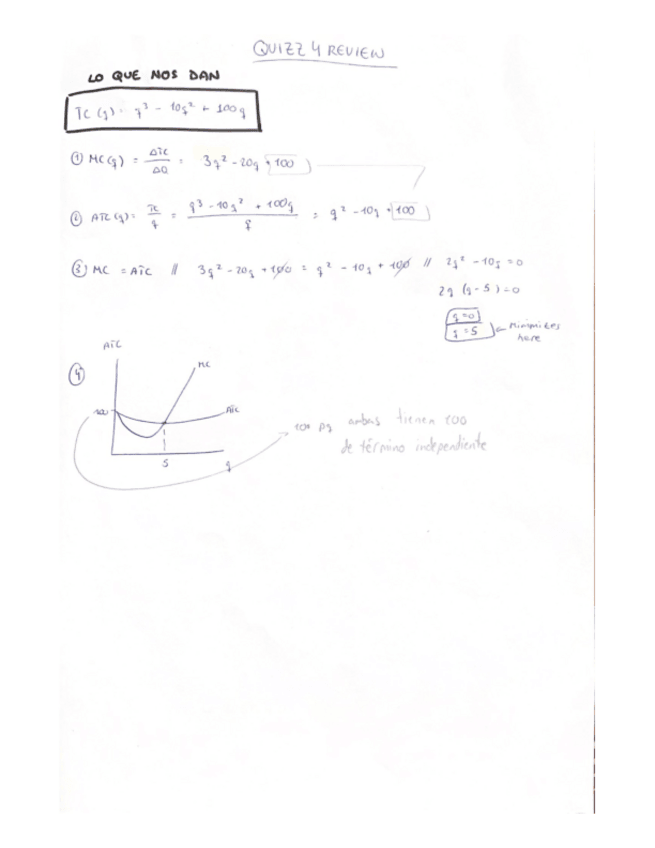 QUIZZ 4 REVIEW
LO QUE NOS DAN
TC (q) = q³ - 10q² + 100q
① MC(q) = ΔTC / ΔQ = 3q² - 20q + 100
② ATC(q) = TC / q = q³ - 10q² + 100q / q = q² - 10q + 100
③ MC = ATC // 3q² - 20q + 100 = q² - 10q + 100 // 2q² - 10q = 0
2q (q - 5) = 0
q = 0
q = 5 ← Minimizes here
ATC
④
MC
100
ATC
5
q
100 pq ambas tienen 100
de término independiente